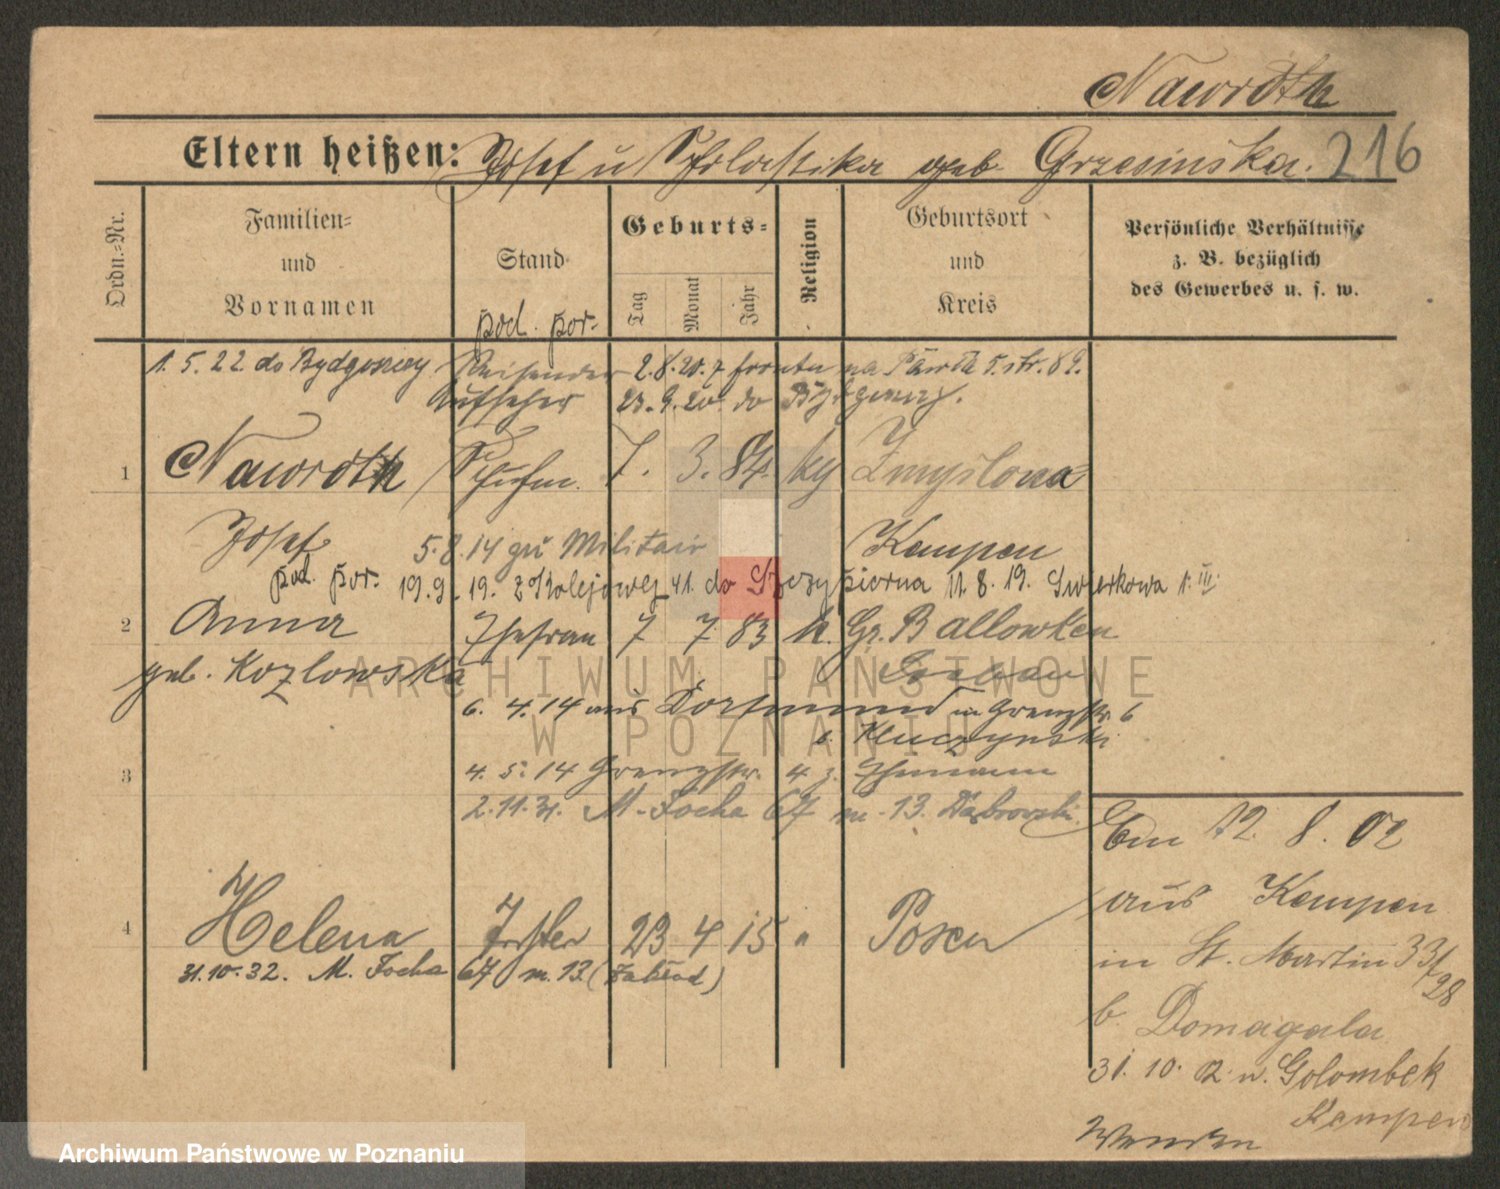 Nawroth
Eltern heißen: Josef u Scholastika geb. Grzesinska. 216
Ordn.=Nr.
Familien=
und
Vornamen
Stand
pod. por.
Geburts=
Tag
Monat
Jahr
Religion
Geburtsort
und
Kreis
Persönliche Verhältnisse
z. B. bezüglich
des Gewerbes u. s. w.
1. 5. 22 do Bydgoszczy Reisender 2.8.20. z frontu na 5. str. 89.
Aufseher 23.9.20. do Bydgoszczy.
1 Nawroth Schuhm. 7. 3. 84. kg Zmyslona
Josef 5. 8. 14 zu Militair Kempen
pod. por. 19.9. 19. z Kolejowej 41. do Szczypiorna 11. 8. 19. Swierkowa 1. III
2 Anna Ehefrau 7 7 83 k. Gr. Ballowken
geb. Kozlowska Löbau
6. 4. 14 aus Dortmund in Grenzstr. 6
b. Kluczynski
3 4. 5. 14 Grenzstr. 4 z. Ehemann
2.11.31. M. Focha 67 m. 13. Dąbrowski
4 Helena Tochter 23 4 15 " Posen
31.10.32. M. Focha 67 m. 13
Em 12. 8. 02
aus Kempen
in St. Martin 33/28
b. Domagala
31. 10. 02 n. Golombek
Kempen
Wenden
ARCHIWUM PAŃSTWOWE
W POZNANIU
Archiwum Państwowe w Poznaniu